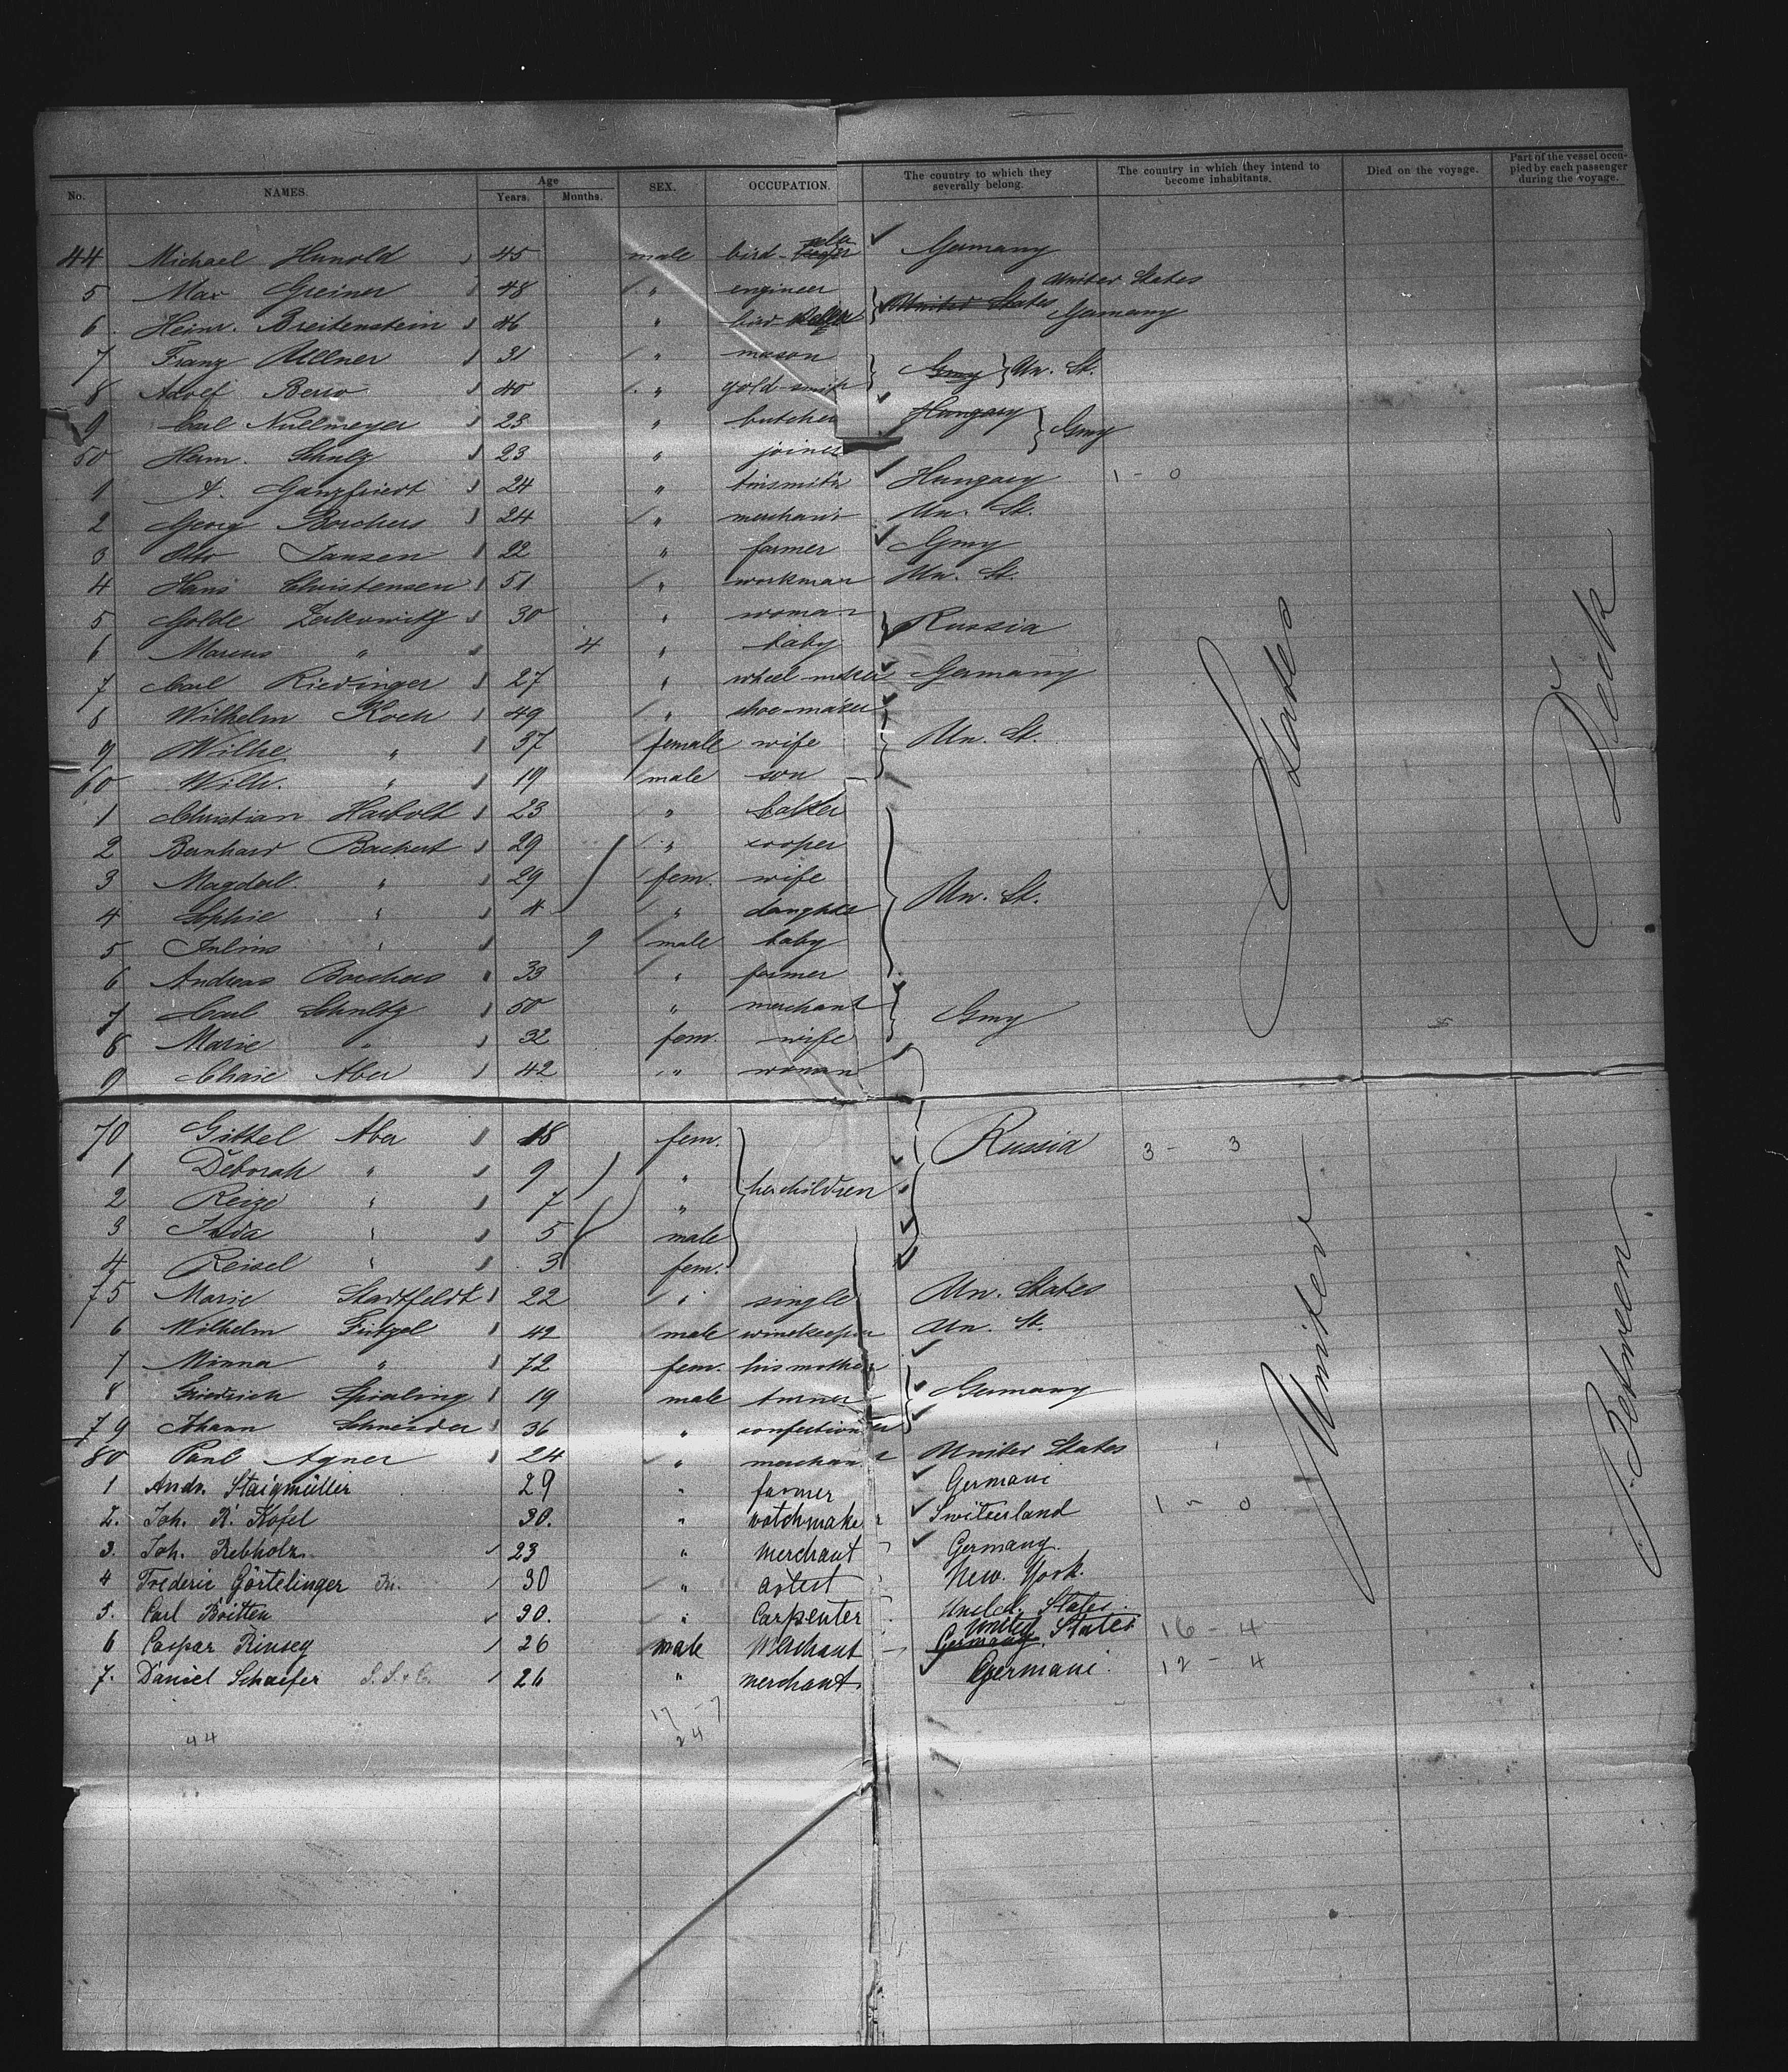 No. NAMES. Age Years. Months. SEX. OCCUPATION. The country to which they severally belong. The country in which they intend to become inhabitants. Died on the voyage. Part of the vessel occupied by each passenger during the voyage.
44 Michael Hunold 45 male bird- Germany
5 Max Greiner 48 " engineer United States United States
6 Heinr. Breitenstein 46 " bird Germany
7 Franz Ullner 31 " mason Gmy Un. St.
8 Adolf 40 " gold-smith
9 Carl Nullmeyer 23 " butcher Hungary Gmy
50 Herm. Schulz 23 " joiner
1 A. Ganzfriedt 24 " tinsmith Hungary 1 - 0
2 Georg Borchers 24 " merchant Un. St.
3 Otto Jansen 22 " farmer Gmy
4 Hans Christensen 51 " workman Un. St.
5 Golde 30 " woman Russia
6 Marcus " 4 " baby
7 Carl Riedinger 27 " wheel-maker Germany
8 Wilhelm Koch 49 " shoe-maker
9 Wilhe " 37 female wife Un. St.
60 Wilh. " 19 male son
1 Christian Harbolt 23 "
2 Bernhard Backert 29 " cooper
3 Magdal. " 29 fem. wife Un. St.
4 Sophie " 4 " daughter
5 Julius " 9 male baby
6 Andreas Borchers 33 " farmer
7 Carl Schultz 50 " merchant Gmy
8 Marie " 32 fem. wife
9 Chaie Aber 42 " woman
70 Gittel Aber 18 fem. Russia 3 - 3
1 Deborah " 9 " her children
2 Reize " 7 "
3 " 5 male
4 Reisel " 3 fem.
75 Marie Stadtfeldt 22 " single Un. States
6 Wilhelm 42 male Un. St.
7 Minna " 72 fem. his mother
8 Friedrich 19 male turner Germany
79 Johann Schneider 36 " confectioner
80 Paul Agner 24 " merchant United States
1 Andr. Staigmüller 29 " farmer Germani
2. Joh. R. Kofel 30. " watchmaker Switzerland 1 - 0
3. Joh. Rebholz 23 " Merchant Germany.
4 Frederic Görtelinger 30 " artist New York.
5. Carl Boitten 30. " Carpenter United. States.
6 Caspar Rinseg 26 male Merchant Germany United States 16 - 4
7. Daniel Schaefer 26 " merchant Germani 12 - 4
17 - 7
44 24
United States
Between Deck